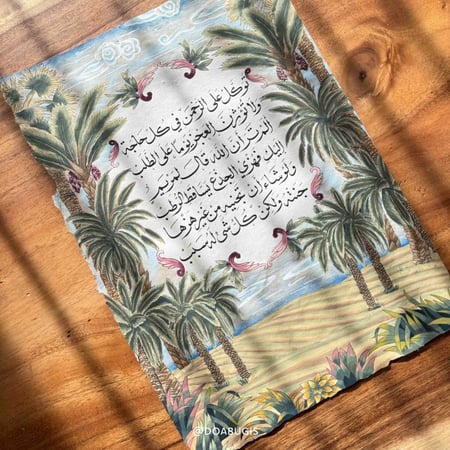 توكل على الرحمن في كل حاجة
ولا تؤثرن العجز يوما على الطلب
ألم تر أن الله قال لمريم
إليك فهزي الجذع يساقط الرطب
ولو شاء أن تجنيه من غير هزها
جنته ولكن كل شيء له سبب
@DOABUGIS_